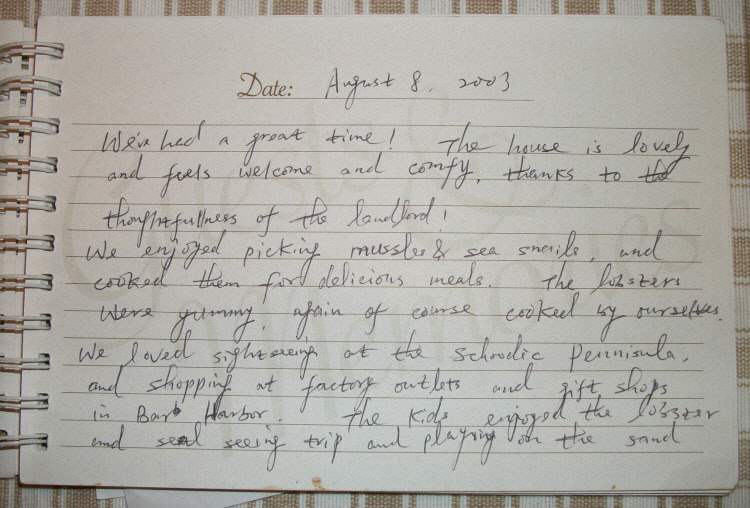 Date: August 8, 2003
We've had a great time! The house is lovely
and feels welcome and comfy, thanks to the
thoughtfullness of the landlord!
We enjoyed picking mussles & sea snails, and
cooked them for delicious meals. The lobsters
were yummy, again of course cooked by ourselves.
We loved sightseeing at the Schoodic Penninsula,
and shopping at factory outlets and gift shops
in Bar Harbor. The kids enjoyed the lobster
and seal seeing trip and playing on the sand